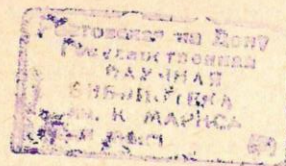 Ростовская на Дону
Государственная
НАУЧНАЯ
БИБЛИОТЕКА
им. К МАРКСА